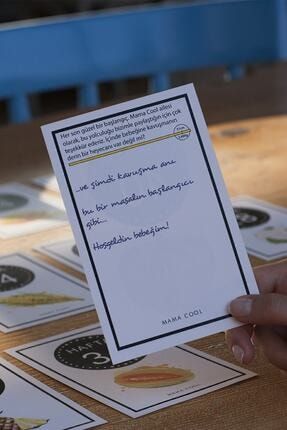 Her son güzel bir başlangıç. Mama Cool ailesi
olarak, bu yolculuğu bizimle paylaştığın için çok
teşekkür ederiz. İçinde bebeğine kavuşmanın
derin bir heyecanı var değil mi?
...ve şimdi kavuşma anı
bu bir masalın başlangıcı
gibi...
Hoşgeldin bebeğim!
MAMA COOL
HAFTA
3
MAMA COOL